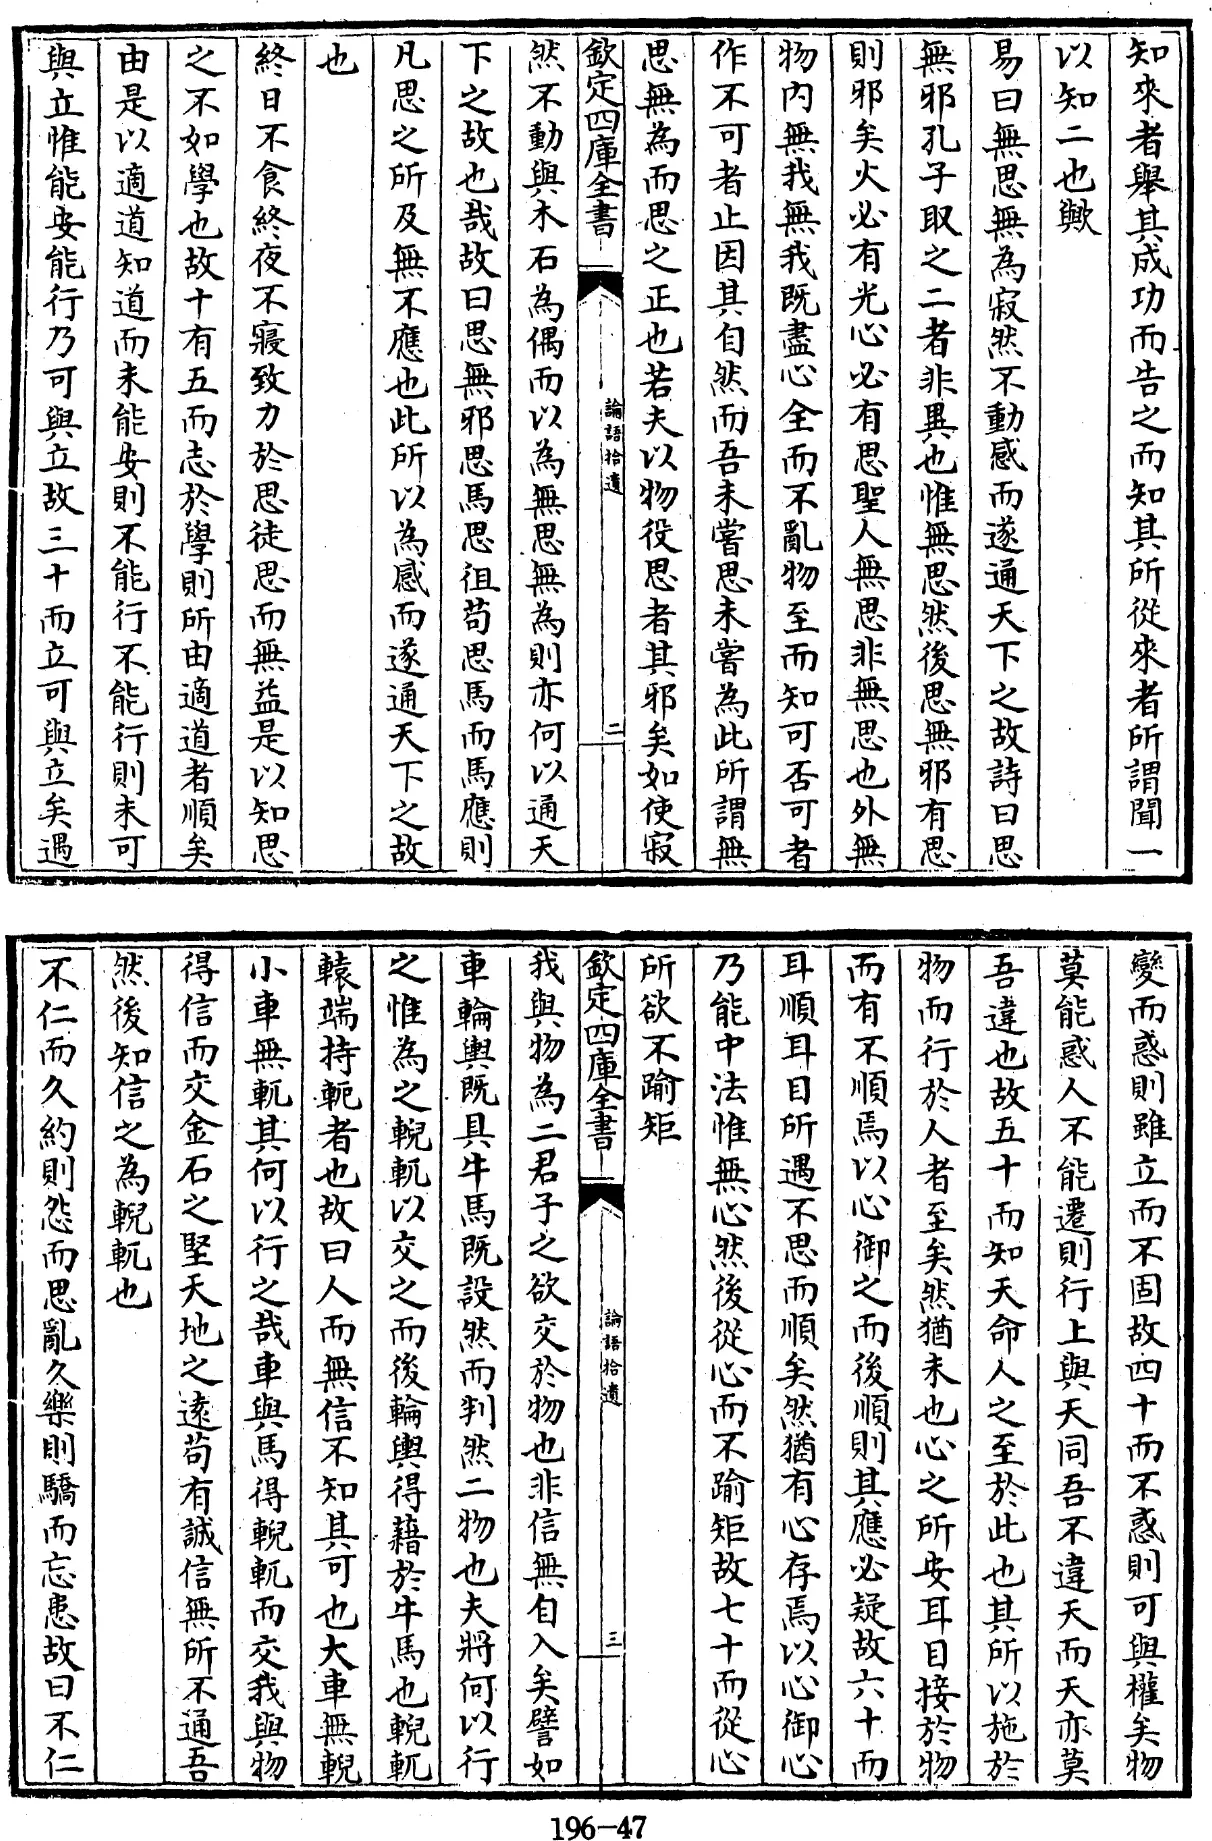 知來者舉其成功而告之而知其所從來者所謂聞一
以知二也歟
易曰無思無為寂然不動感而遂通天下之故詩曰思
無邪孔子取之二者非異也惟無思然後思無邪有思
則邪矣火必有光心必有思聖人無思非無思也外無
物內無我無我既盡心全而不亂物至而知可否可者
作不可者止因其自然而吾未嘗思未嘗為此所謂無
思無為而思之正也若夫以物役思者其邪矣如使寂
欽定四庫全書
論語拾遺
二
然不動與木石為偶而以為無思無為則亦何以通天
下之故也哉故曰思無邪思馬思徂苟思馬而馬應則
凡思之所及無不應也此所以為感而遂通天下之故
也
終日不食終夜不寢致力於思徒思而無益是以知思
之不如學也故十有五而志於學則所由適道者順矣
由是以適道知道而未能安則不能行不能行則未可
與立惟能安能行乃可與立故三十而立可與立矣遇
變而惑則雖立而不固故四十而不惑則可與權矣物
莫能惑人不能遷則行上與天同吾不違天而天亦莫
吾違也故五十而知天命人之至於此也其所以施於
物而行於人者至矣然猶未也心之所安耳目接於物
而有不順焉以心御之而後順則其應必疑故六十而
耳順耳目所遇不思而順矣然猶有心存焉以心御心
乃能中法惟無心然後從心而不踰矩故七十而從心
所欲不踰矩
欽定四庫全書
論語拾遺
三
我與物為二君子之欲交於物也非信無自入矣譬如
車輪輿既具牛馬既設然而判然二物也夫將何以行
之惟為之輗軏以交之而後輪輿得藉於牛馬也輗軏
轅端持軛者也故曰人而無信不知其可也大車無輗
小車無軏其何以行之哉車與馬得輗軏而交我與物
得信而交金石之堅天地之遠苟有誠信無所不通吾
然後知信之為輗軏也
不仁而久約則怨而思亂久樂則驕而忘患故曰不仁
196-47